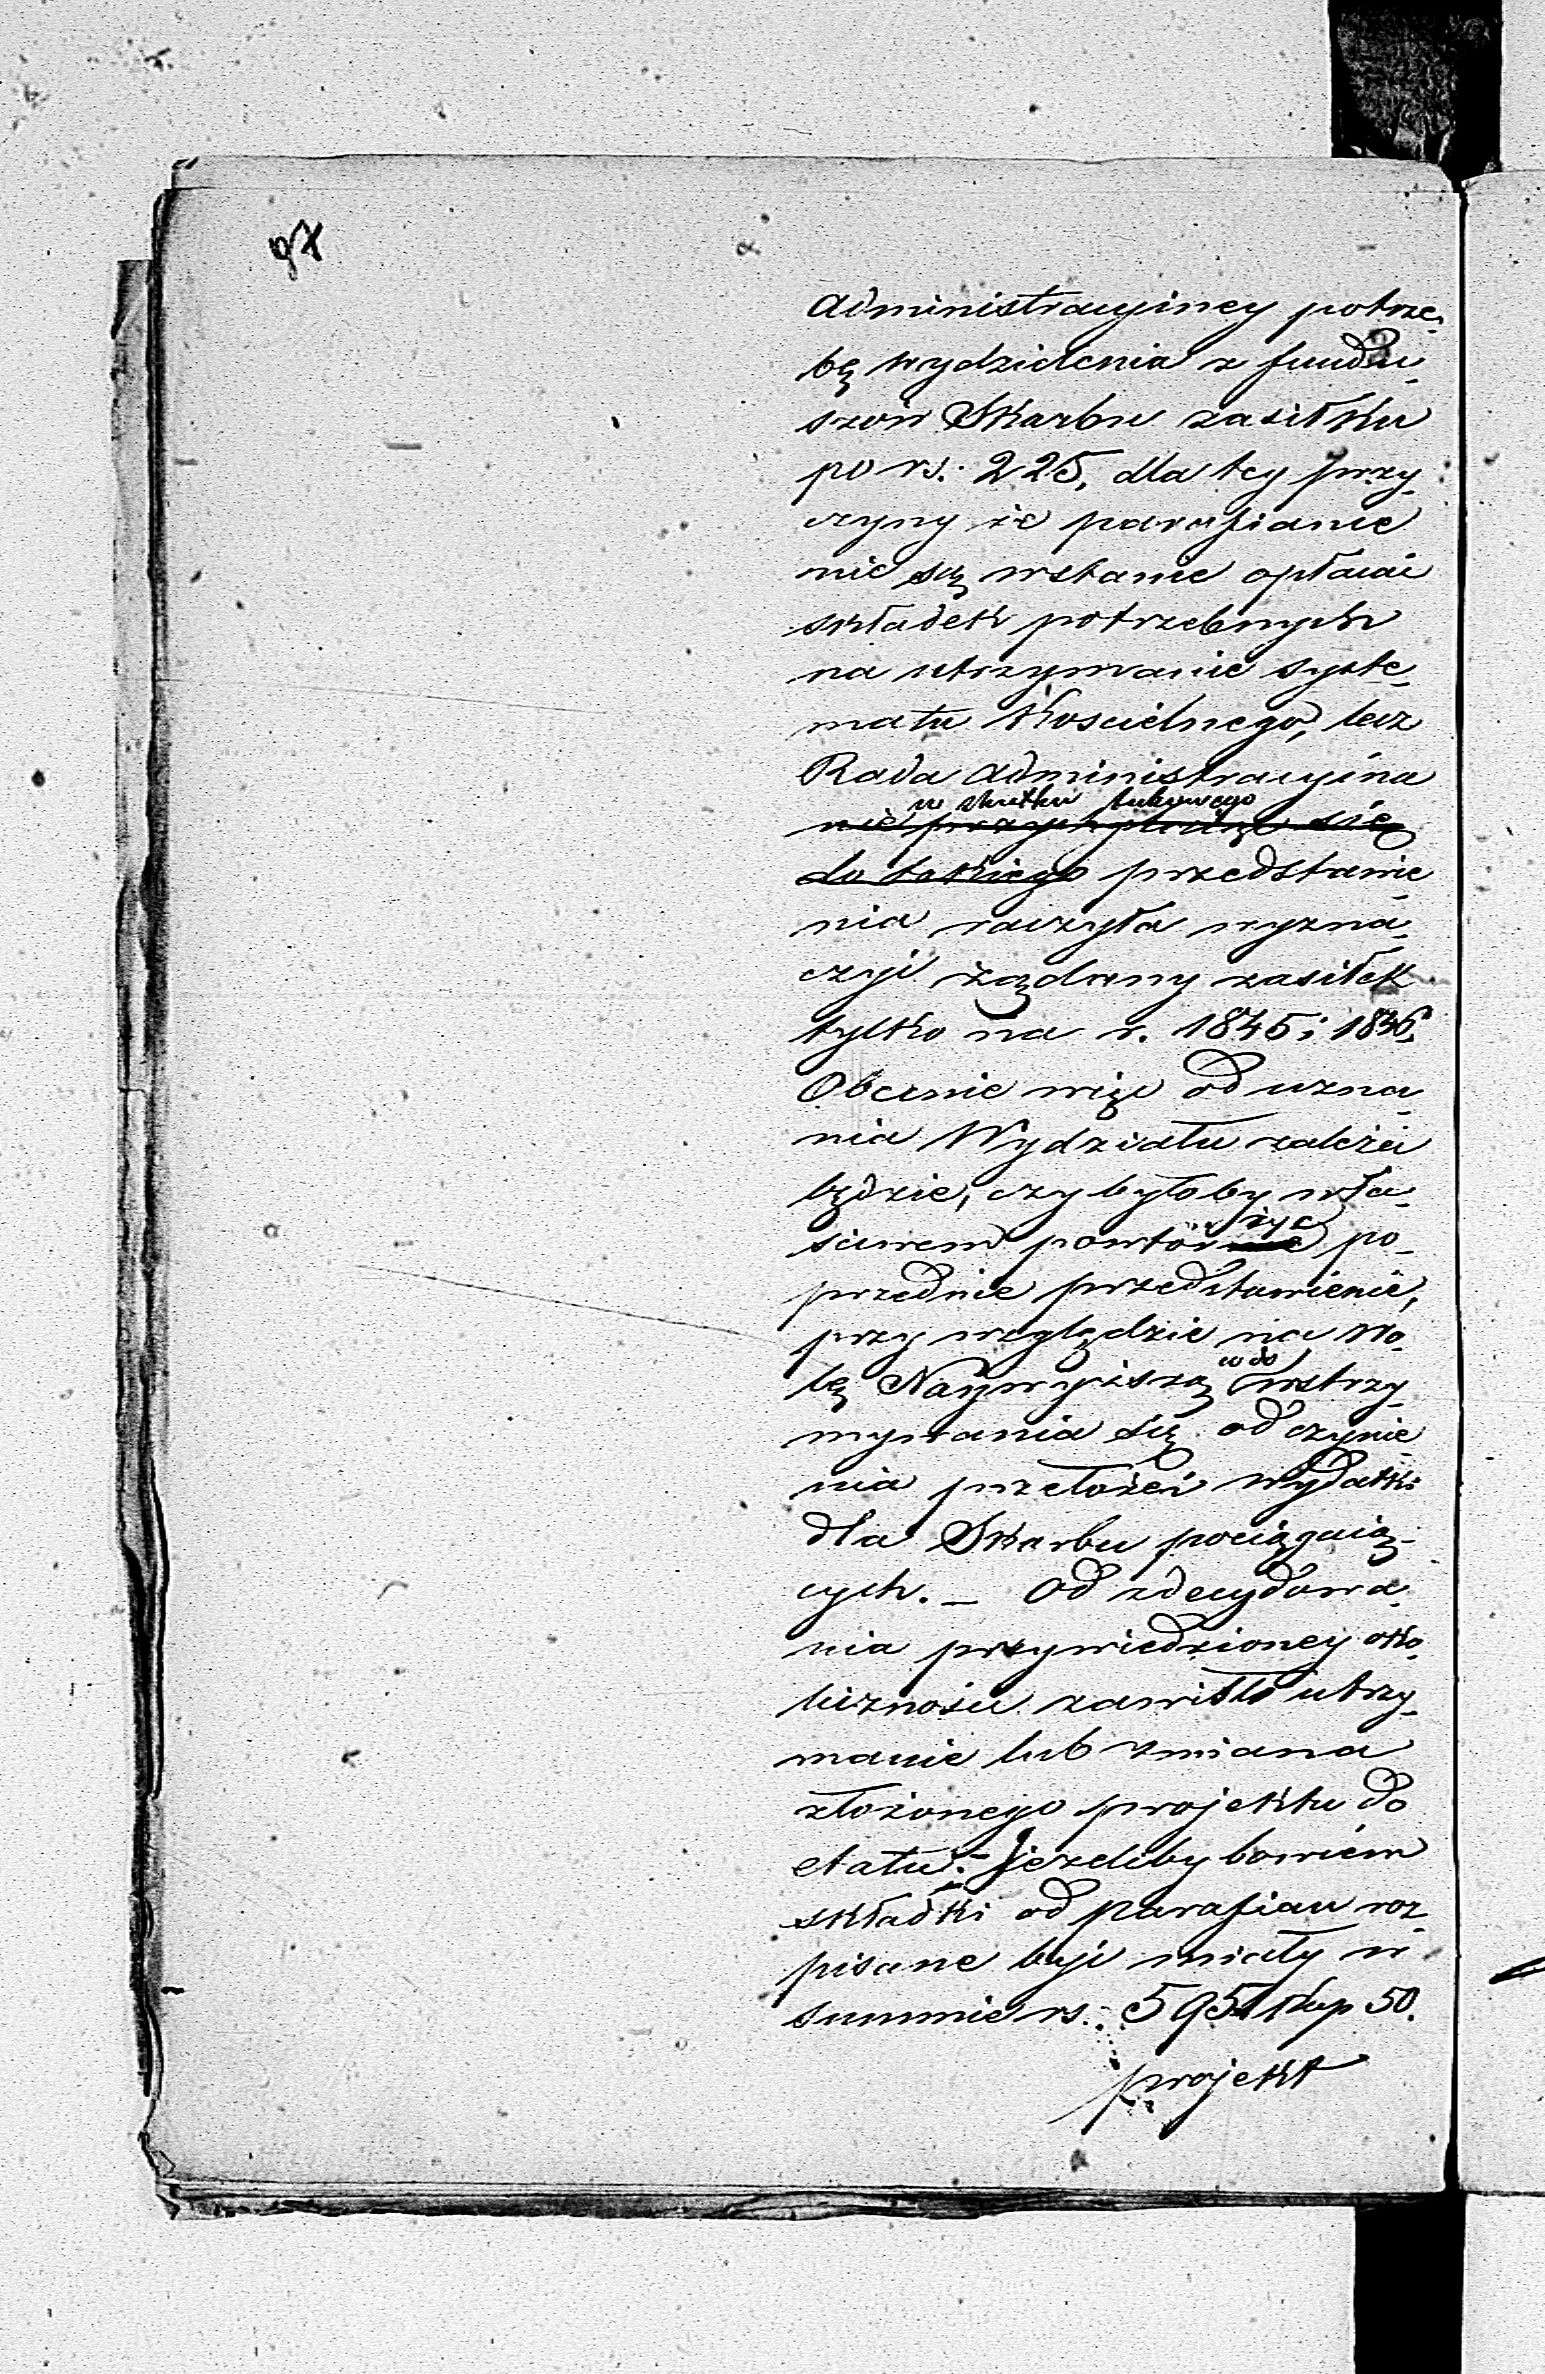 97
Administracyiney potrze-
bę wydzielenia z fundu-
szów Skarbu zasiłku
po rs. 225, dla tey przy-
czyny że parafianie
nie są wstanie opłacać
składek potrzebnych
na utrzymanie syste-
matu Kościelnego, lecz
Rada Administracyina
w skutku takowego
nie przychylając się
do takiego przedstawie
nia raczyła wyzna-
czyć żądany zasiłek
tylko na r. 1845 i 1846.
Obecnie więc od uzna-
nia Wydziału zależeć
będzie, czy byłoby wła-
życ
sciwem powtórnie po-
przednie przedstawienie,
przy względzie na Wo-
co do
lę Naywyższą wstrzy-
mywania się od czynie-
nia przełożeń wydatki
dla Skarbu pociągaią-
cych. – Od zdecydowa-
nia przywiedzioney oko-
liczności zawisło utrzy-
manie lub zmiana
złożonego projektu do
etatu; – jeżeliby bowiem
składki od parafian roz-
pisane być miały w
summie rs. 595 kop 50.
projekt